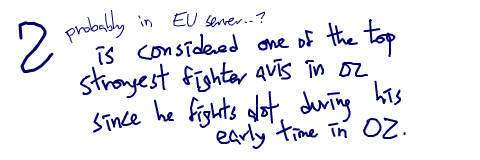 2 probably in EU server..?
is considered one of the top
strongest fighter avis in OZ
since he fights a lot during his
early time in OZ.